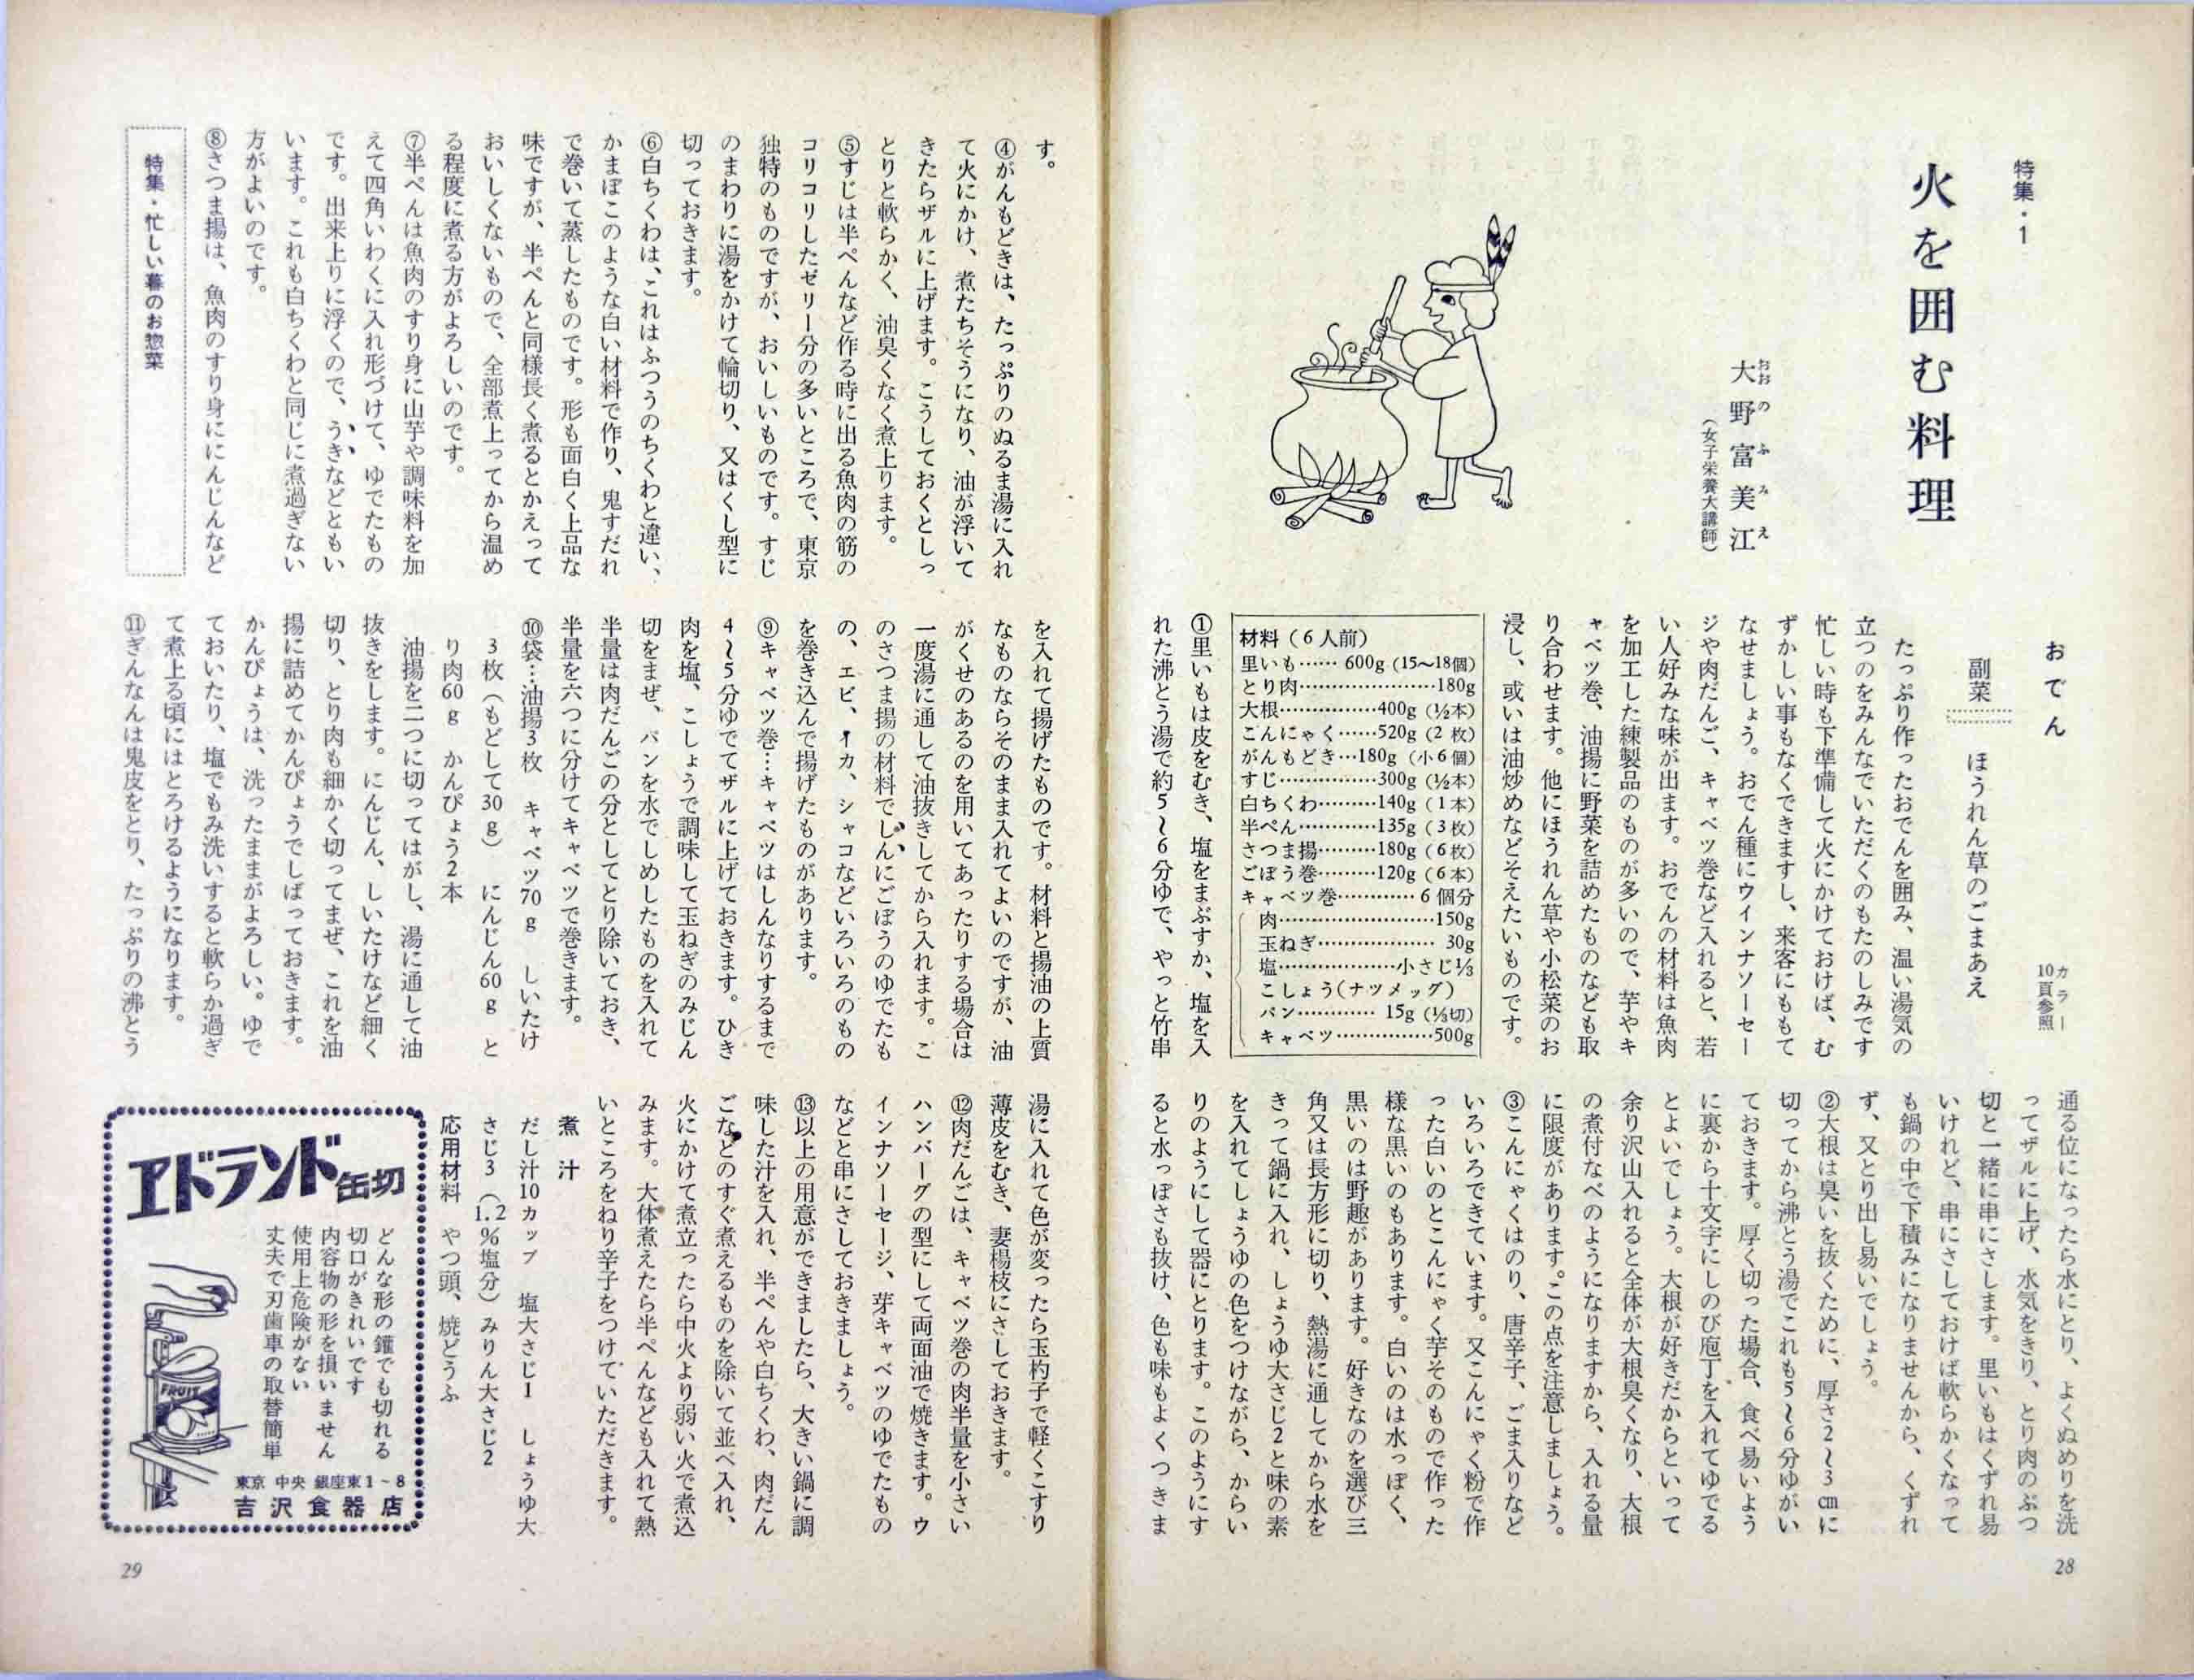 特集・1
火を囲む料理
大野富美江
おおのふみえ
（女子栄養大講師）
おでん
カラー
10頁参照
副菜 ほうれん草のごまあえ
たっぷり作ったおでんを囲み、温い湯気の
立つのをみんなでいただくのもたのしみです
忙しい時も下準備して火にかけておけば、む
ずかしい事もなくできますし、来客にももて
なせましょう。おでん種にウインナソーセー
ジや肉だんご、キャベツ巻など入れると、若
い人好みな味が出ます。おでんの材料は魚肉
を加工した練製品のものが多いので、芋やキ
ャベツ巻、油揚に野菜を詰めたものなども取
り合わせます。他にほうれん草や小松菜のお
浸し、或いは油炒めなどそえたいものです。
材料（6人前）
里いも……600g（15〜18個）
とり肉…………………180g
大根……………400g（½本）
こんにゃく……520g（2枚）
がんもどき…180g（小6個）
すじ……………300g（½本）
白ちくわ………140g（1本）
半ぺん…………135g（3枚）
さつま揚………180g（6枚）
ごぼう巻………120g（6本）
キャベツ巻…………6個分
肉……………………150g
玉ねぎ………………30g
塩………………小さじ⅓
こしょう（ナツメッグ）
パン…………15g（⅓切）
キャベツ……………500g
①里いもは皮をむき、塩をまぶすか、塩を入
れた沸とう湯で約5〜6分ゆで、やっと竹串
通る位になったら水にとり、よくぬめりを洗
ってザルに上げ、水気をきり、とり肉のぶつ
切と一緒に串にさします。里いもはくずれ易
いけれど、串にさしておけば軟らかくなって
も鍋の中で下積みになりませんから、くずれ
ず、又とり出し易いでしょう。
②大根は臭いを抜くために、厚さ2〜3㎝に
切ってから沸とう湯でこれも5〜6分ゆがい
ておきます。厚く切った場合、食べ易いよう
に裏から十文字にしのび庖丁を入れてゆでる
とよいでしょう。大根が好きだからといって
余り沢山入れると全体が大根臭くなり、大根
の煮付なべのようになりますから、入れる量
に限度があります。この点を注意しましょう。
③こんにゃくはのり、唐辛子、ごま入りなど
いろいろできています。又こんにゃく粉で作
った白いのとこんにゃく芋そのもので作った
様な黒いのもあります。白いのは水っぽく、
黒いのは野趣があります。好きなのを選び三
角又は長方形に切り、熱湯に通してから水を
きって鍋に入れ、しょうゆ大さじ2と味の素
を入れてしょうゆの色をつけながら、からい
りのようにして器にとります。このようにす
ると水っぽさも抜け、色も味もよくつきま
28
す。
④がんもどきは、たっぷりのぬるま湯に入れ
て火にかけ、煮たちそうになり、油が浮いて
きたらザルに上げます。こうしておくとしっ
とりと軟らかく、油臭くなく煮上ります。
⑤すじは半ぺんなど作る時に出る魚肉の筋の
コリコリしたゼリー分の多いところで、東京
独特のものですが、おいしいものです。すじ
のまわりに湯をかけて輪切り、又はくし型に
切っておきます。
⑥白ちくわは、これはふつうのちくわと違い、
かまぼこのような白い材料で作り、鬼すだれ
で巻いて蒸したものです。形も面白く上品な
味ですが、半ぺんと同様長く煮るとかえって
おいしくないもので、全部煮上ってから温め
る程度に煮る方がよろしいのです。
⑦半ぺんは魚肉のすり身に山芋や調味料を加
えて四角いわくに入れ形づけて、ゆでたもの
です。出来上りに浮くので、うきなどともい
います。これも白ちくわと同じに煮過ぎない
方がよいのです。
⑧さつま揚は、魚肉のすり身ににんじんなど
特集・忙しい暮のお惣菜
を入れて揚げたものです。材料と揚油の上質
なものならそのまま入れてよいのですが、油
がくせのあるのを用いてあったりする場合は
一度湯に通して油抜きしてから入れます。こ
のさつま揚の材料でしんにごぼうのゆでたも
の、エビ、イカ、シャコなどいろいろのもの
を巻き込んで揚げたものがあります。
⑨キャベツ巻…キャベツはしんなりするまで
4〜5分ゆでてザルに上げておきます。ひき
肉を塩、こしょうで調味して玉ねぎのみじん
切をまぜ、パンを水でしめしたものを入れて
半量は肉だんごの分としてとり除いておき、
半量を六つに分けてキャベツで巻きます。
⑩袋…油揚3枚 キャベツ70g しいたけ
3枚（もどして30g） にんじん60g と
り肉60g かんぴょう2本
油揚を二つに切ってはがし、湯に通して油
抜きをします。にんじん、しいたけなど細く
切り、とり肉も細かく切ってまぜ、これを油
揚に詰めてかんぴょうでしばっておきます。
かんぴょうは、洗ったままがよろしい。ゆで
ておいたり、塩でもみ洗いすると軟らか過ぎ
て煮上る頃にはとろけるようになります。
⑪ぎんなんは鬼皮をとり、たっぷりの沸とう
湯に入れて色が変ったら玉杓子で軽くこすり
薄皮をむき、妻楊枝にさしておきます。
⑫肉だんごは、キャベツ巻の肉半量を小さい
ハンバーグの型にして両面油で焼きます。ウ
インナソーセージ、芽キャベツのゆでたもの
などと串にさしておきましょう。
⑬以上の用意ができましたら、大きい鍋に調
味した汁を入れ、半ぺんや白ちくわ、肉だん
ごなどのすぐ煮えるものを除いて並べ入れ、
火にかけて煮立ったら中火より弱い火で煮込
みます。大体煮えたら半ぺんなども入れて熱
いところをねり辛子をつけていただきます。
煮汁
だし汁10カップ 塩大さじ1 しょうゆ大
さじ3（1.2％塩分）みりん大さじ2
応用材料 やつ頭、焼どうふ
ヱドランド缶切
どんな形の鑵でも切れる
切口がきれいです
内容物の形を損いません
使用上危険がない
丈夫で刃歯車の取替簡単
FRUIT
東京 中央 銀座東1〜8
吉沢食器店
29